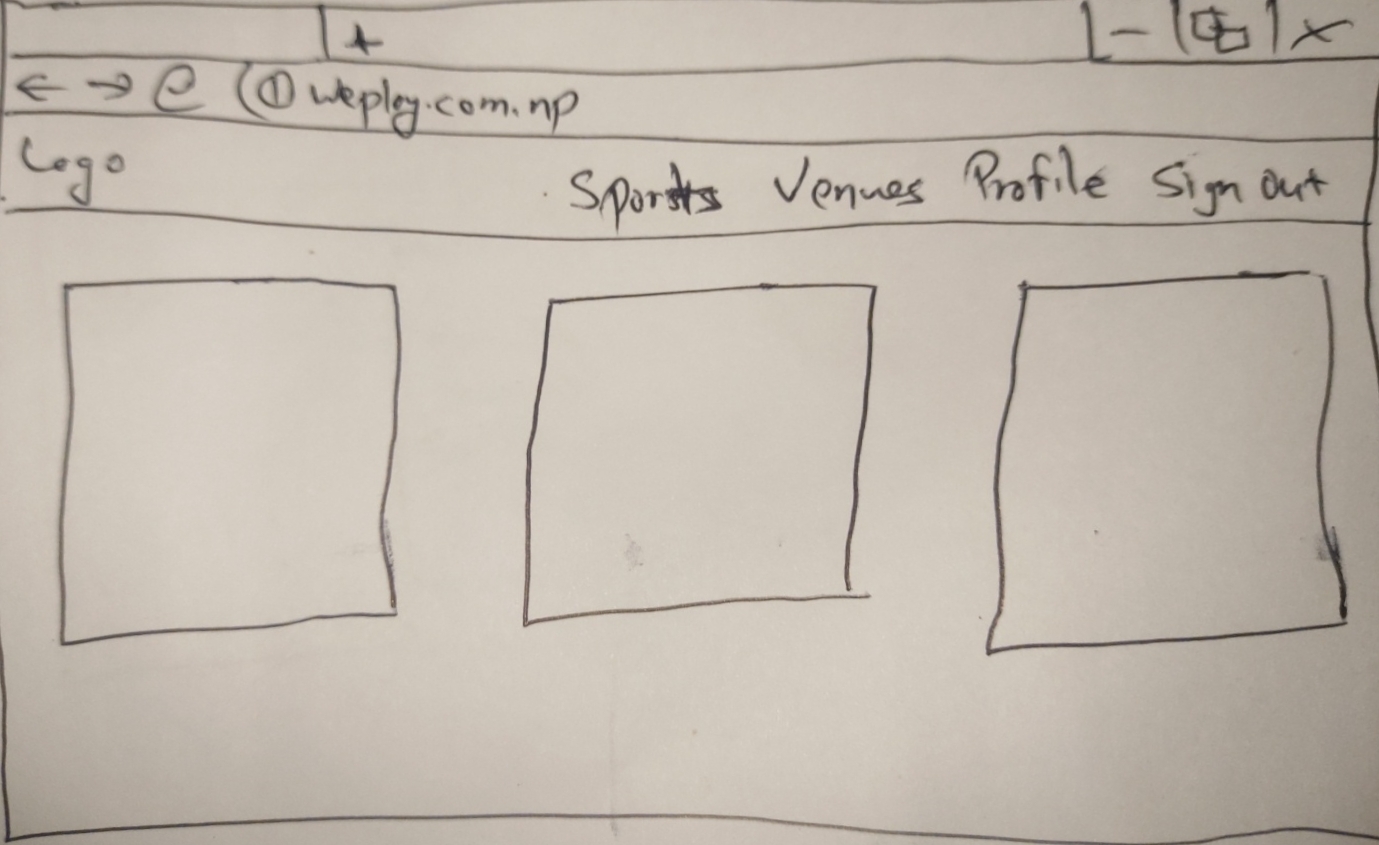 weplay.com.np
Logo
Sports Venues Profile Sign out